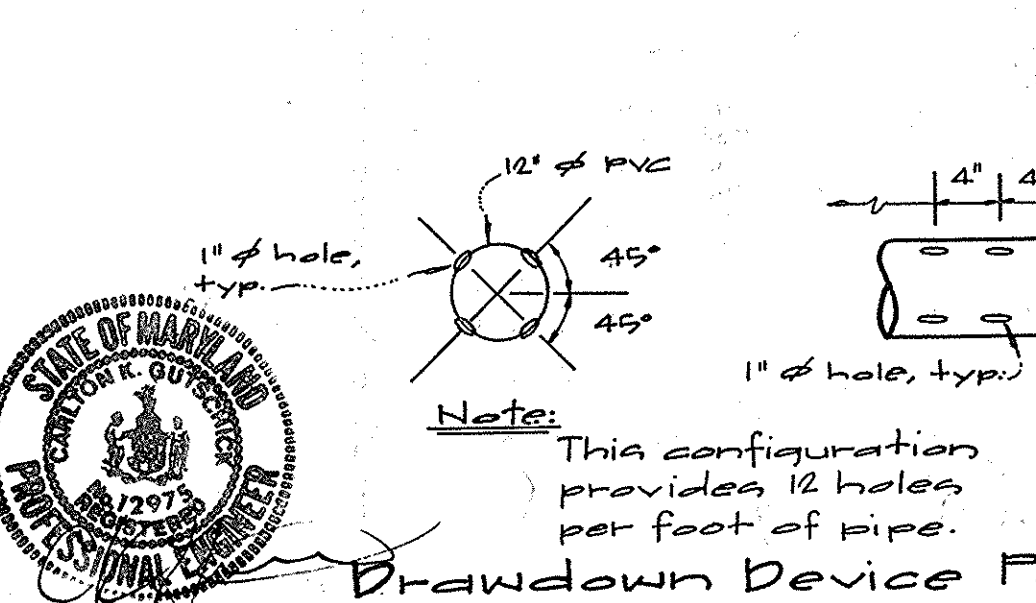 12" ø PVC
1" ø hole,
typ.
45°
45°
4"
4
1" ø hole, typ.
STATE OF MARYLAND
CARLTON K. GUTSCHICK
No. 12975
REGISTERED
PROFESSIONAL ENGINEER
Note:
This configuration
provides 12 holes
per foot of pipe.
Drawdown Device P